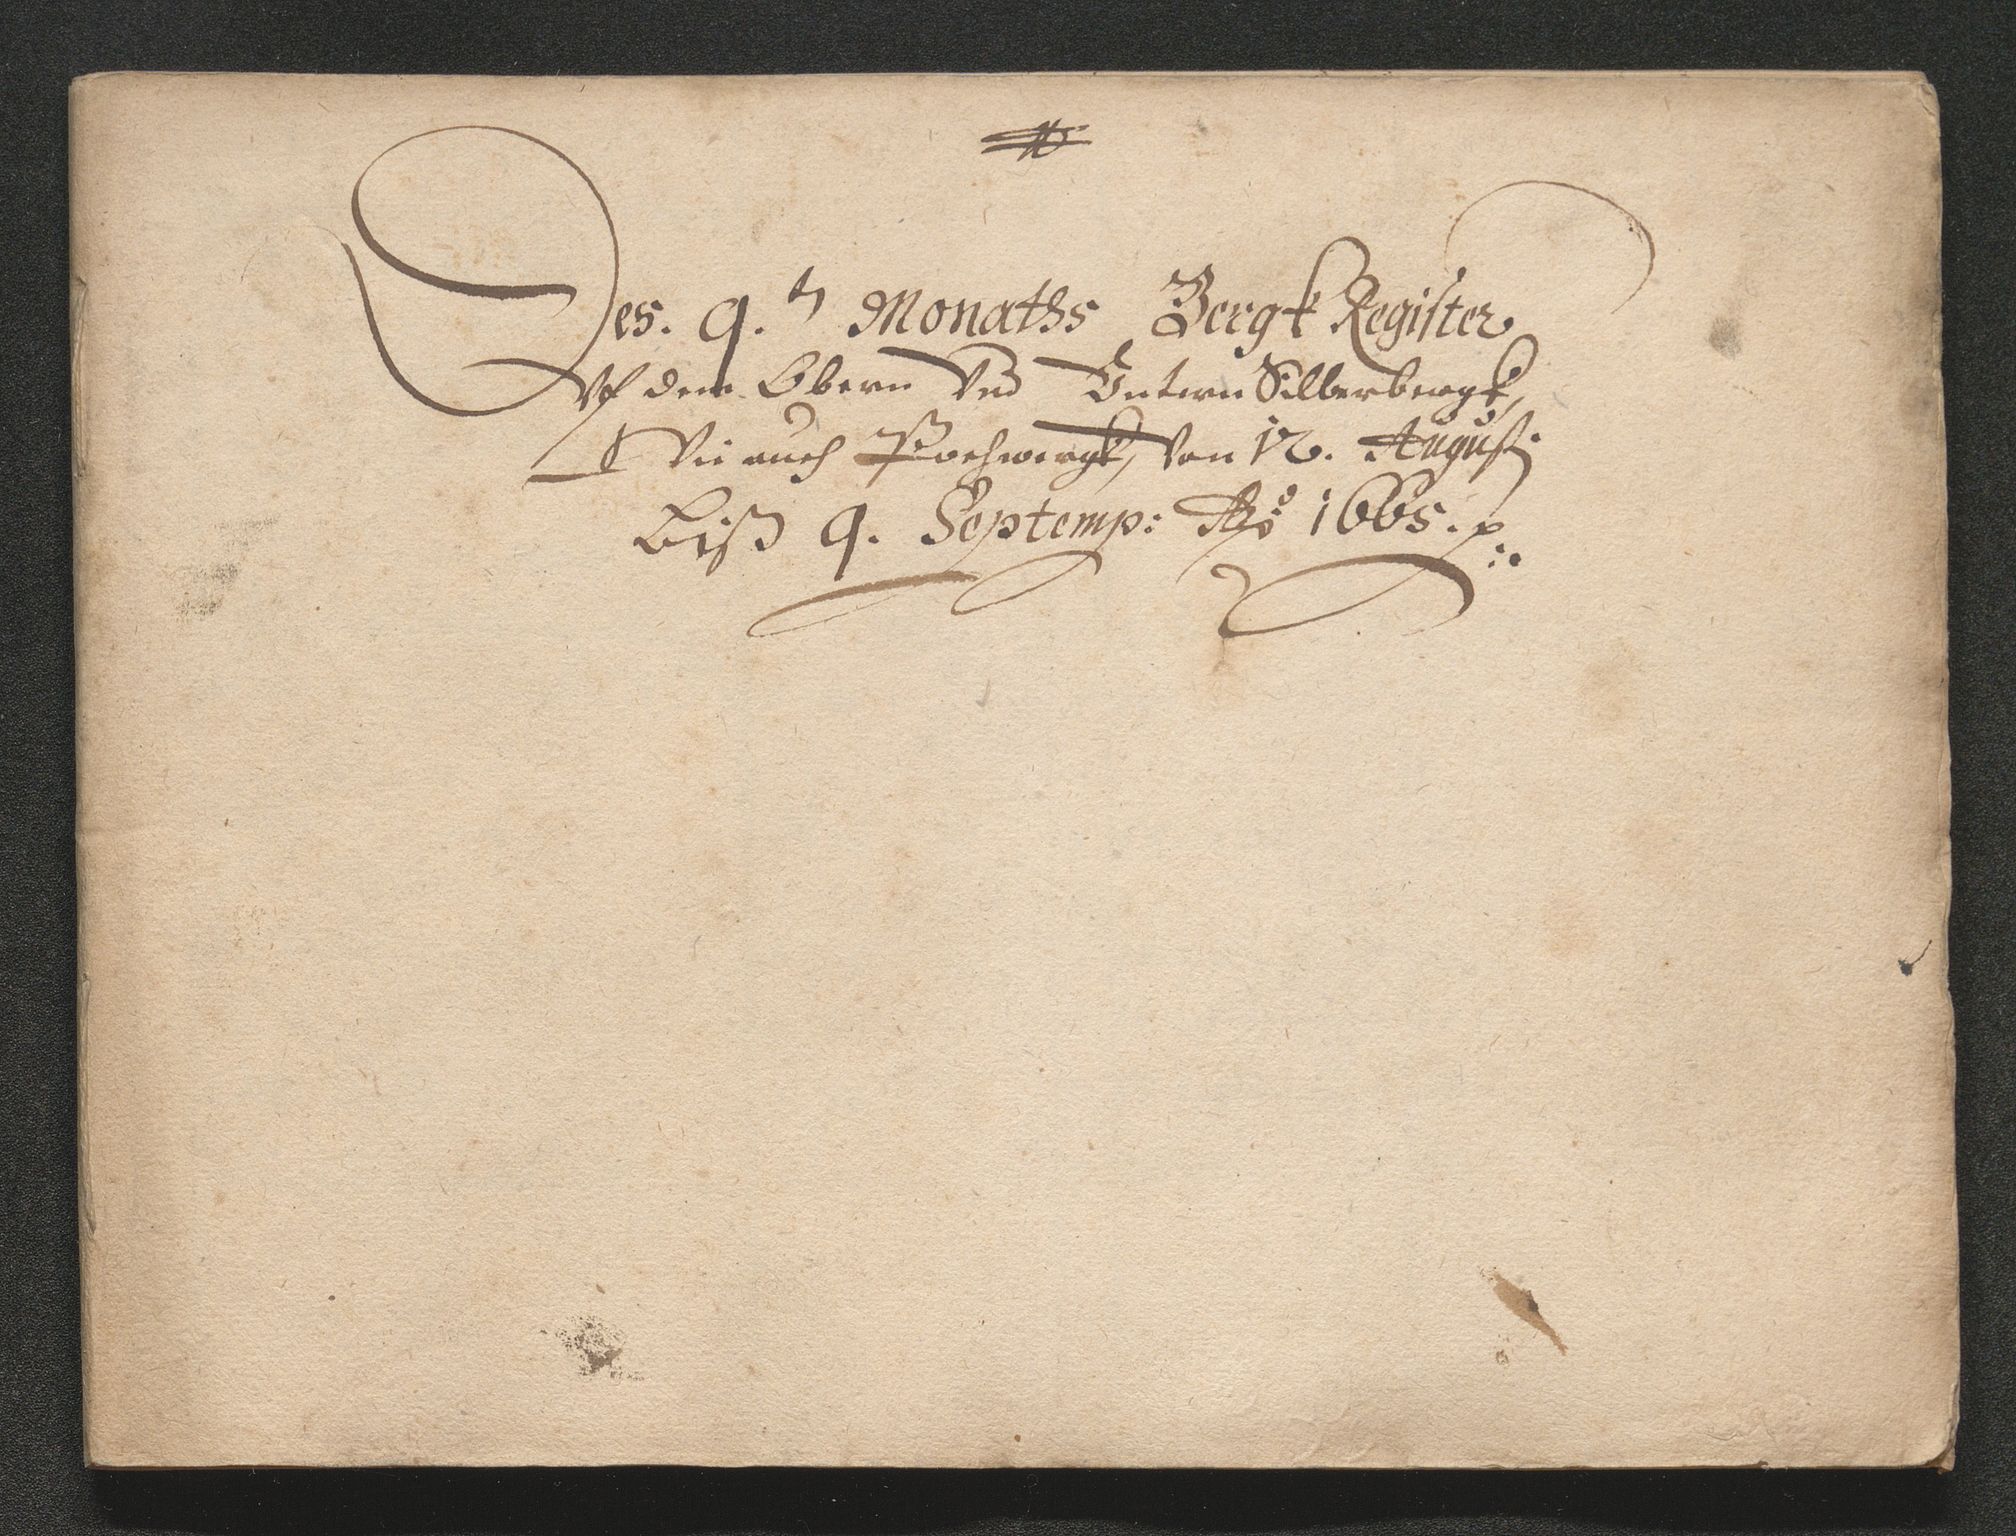 Des. 9.tn Monaths Bergk Register
Vf dem Obern Vnd Vntern Silberbergk,
Wie auch Pochwergk, Von 12. Augusti
Biß 9. Septemp: Ao 1665. p